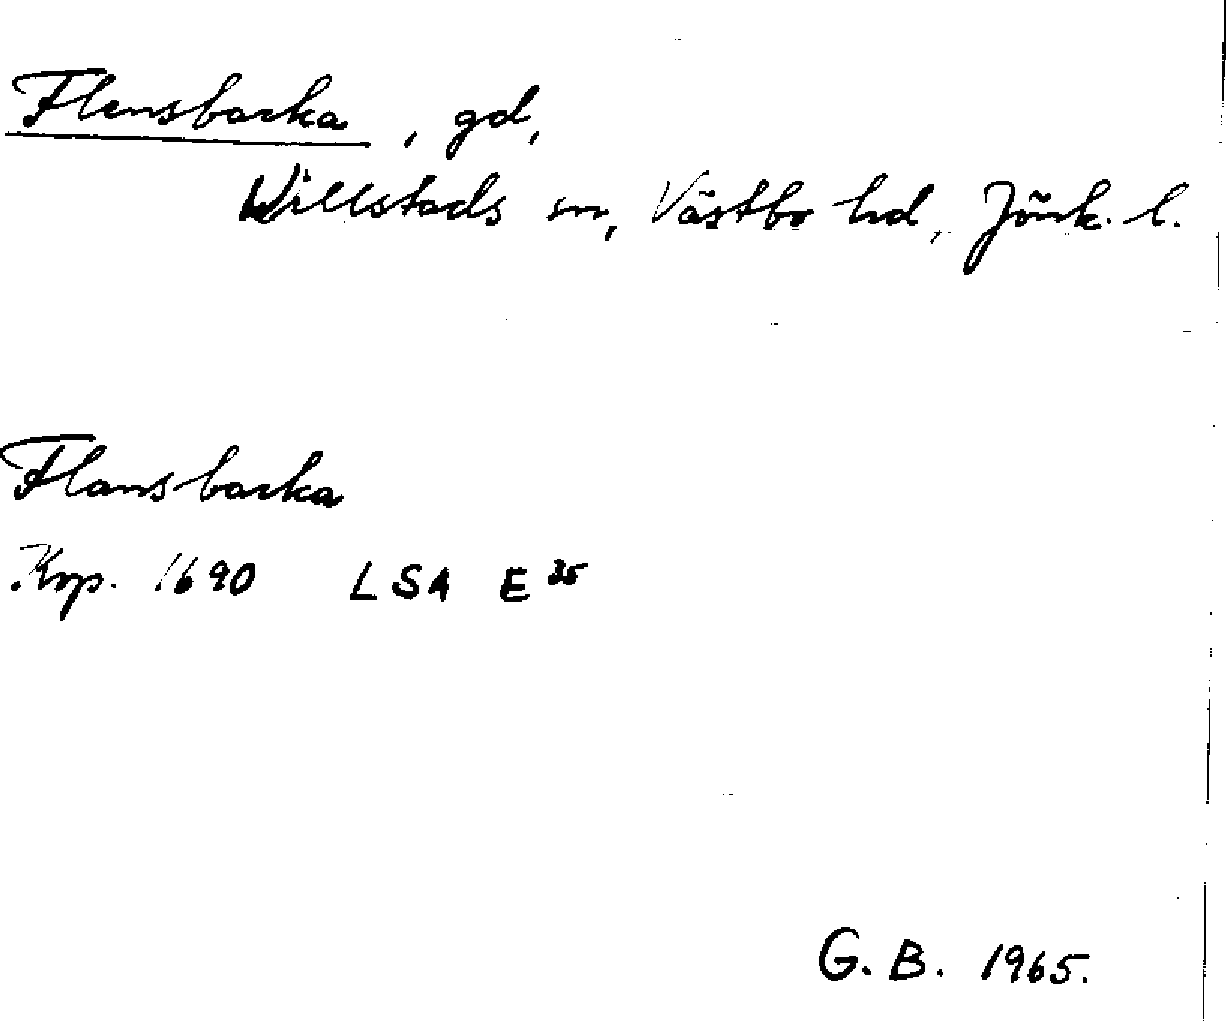 Flensbacka, gd,
Willstads sn, Västbo hd, Jönk. l.
Flansbacka
Kop. 1690 LSA E 35
G. B. 1965.